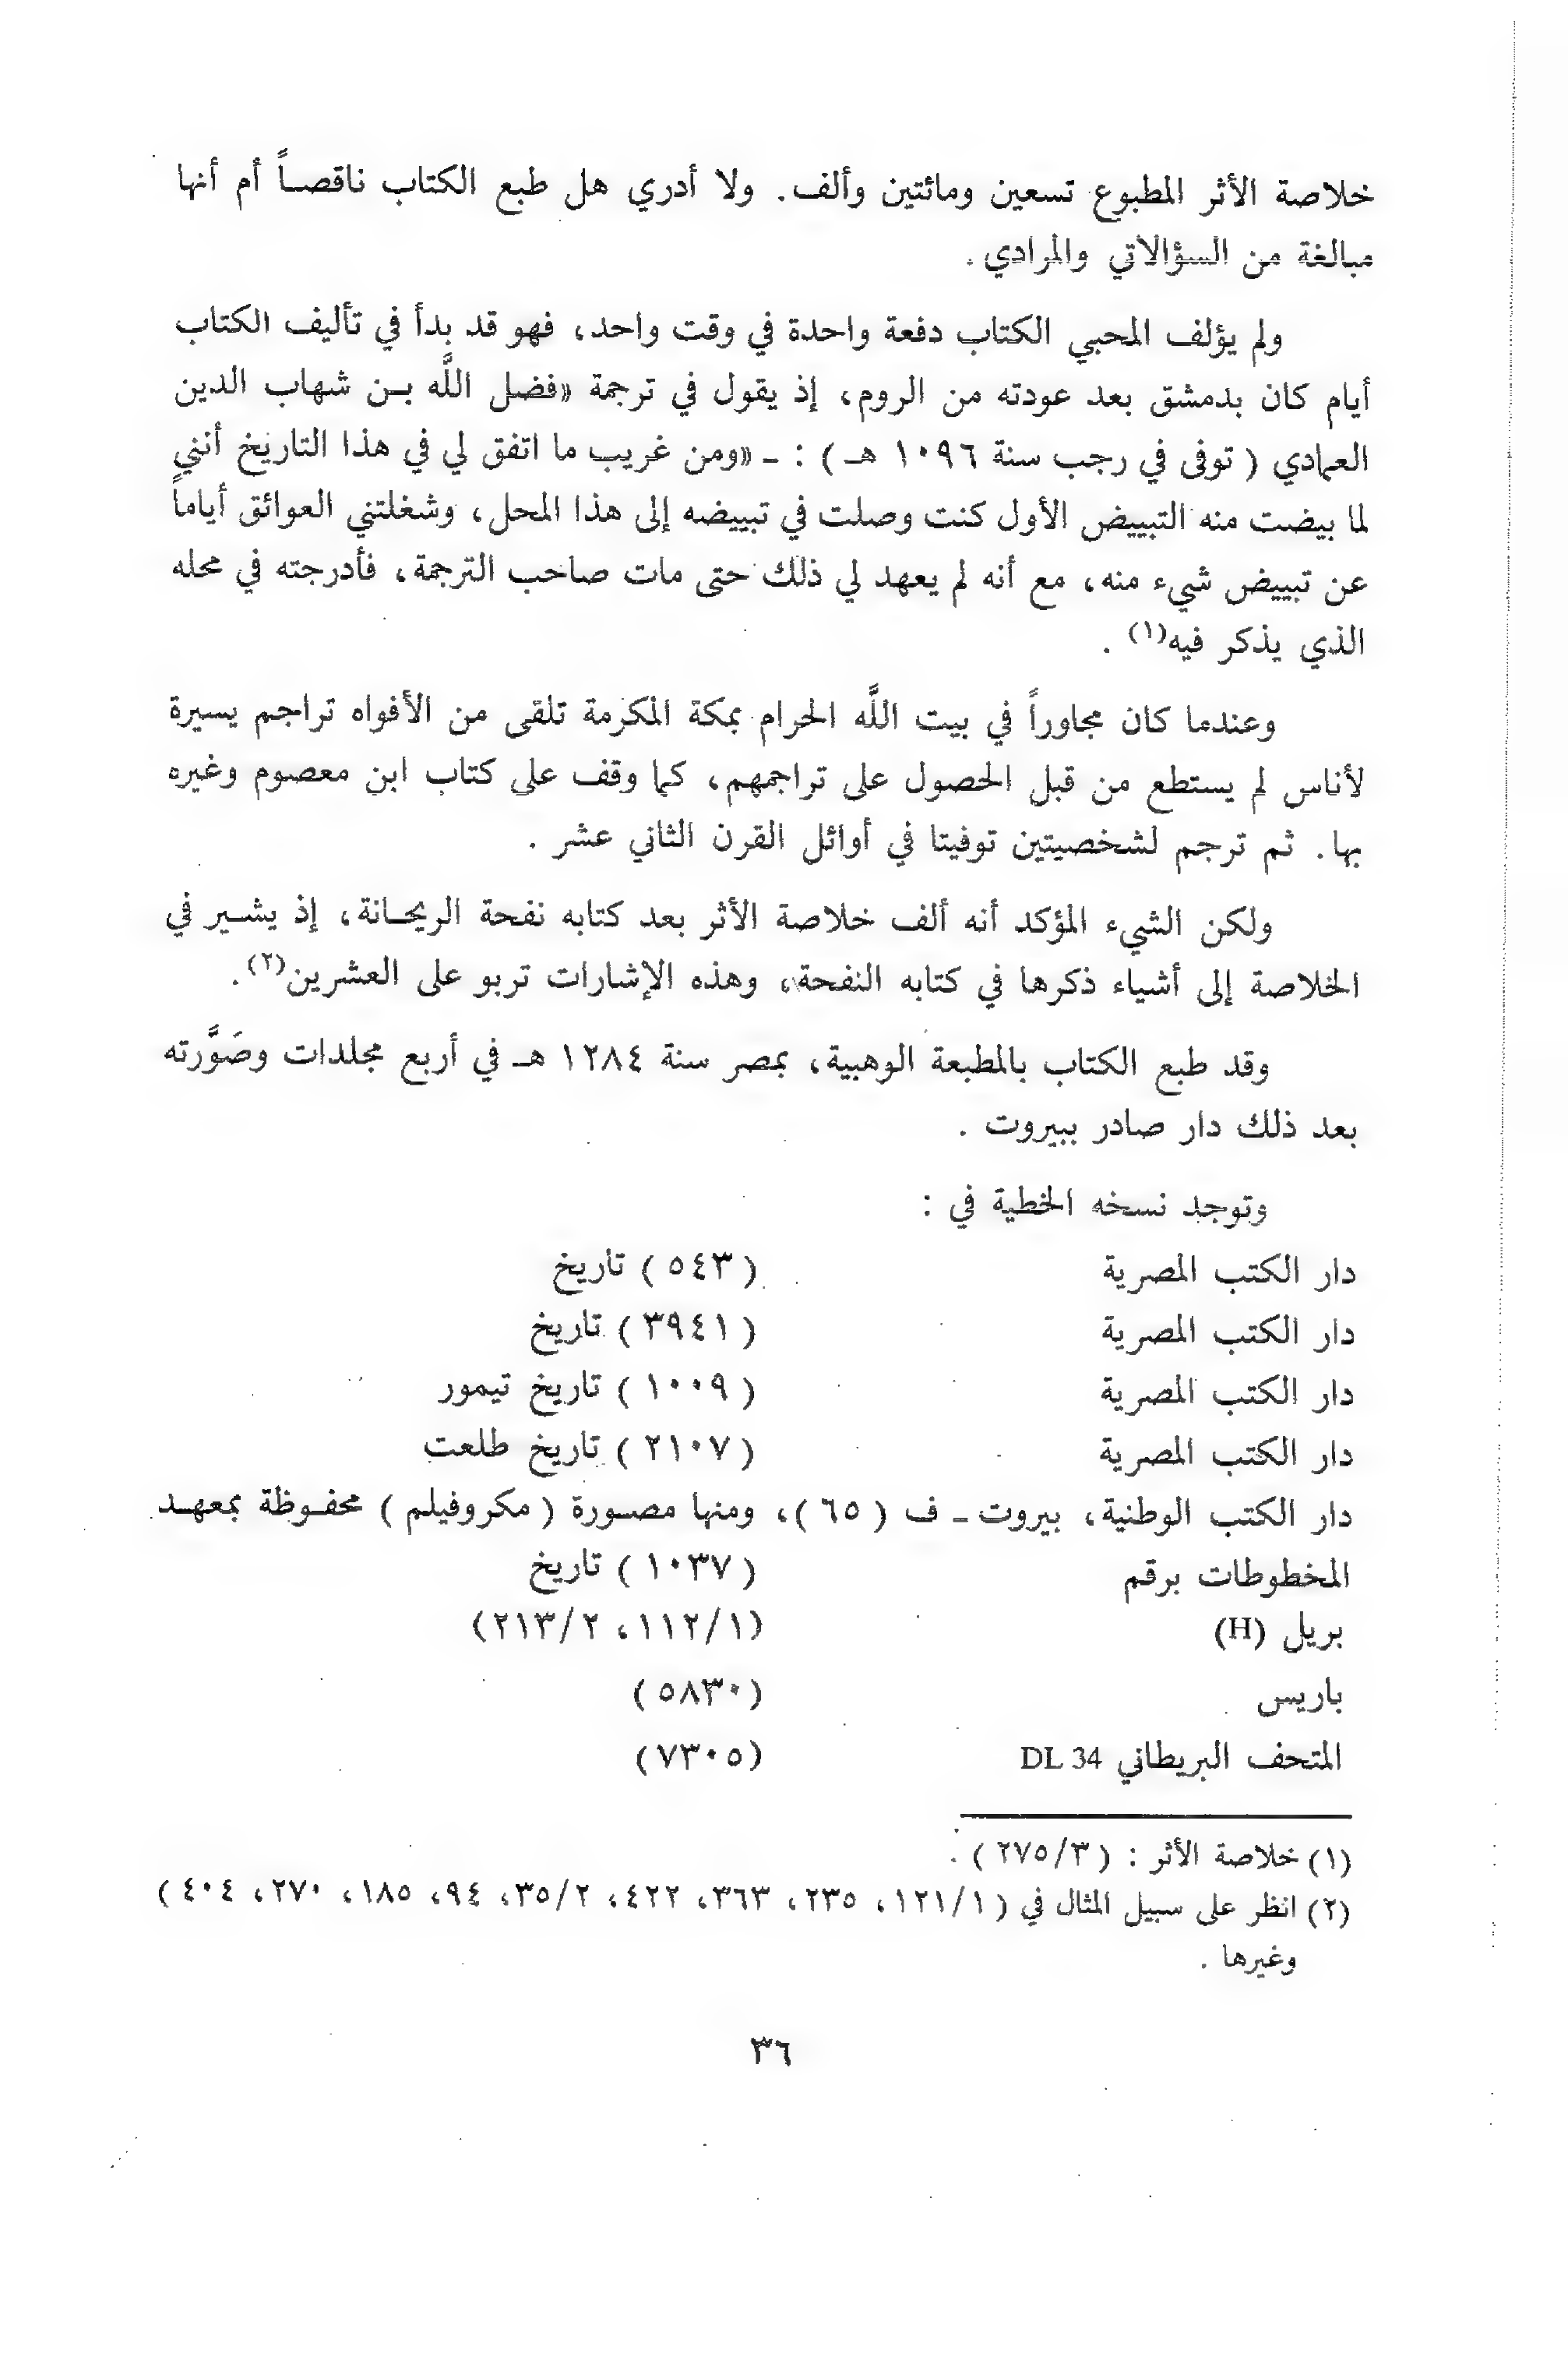 خلاصة الأثر المطبوع تسعين ومائتين وألف. ولا أدري هل طبع الكتاب ناقصاً أم أنها
مبالغة من السؤالاتي والمرادي .
ولم يؤلف المحبي الكتاب دفعة واحدة في وقت واحد، فهو قد بدأ في تأليف الكتاب
أيام كان بدمشق بعد عودته من الروم، إذ يقول في ترجمة «فضل اللَّه بـن شهاب الدين
العمادي ( توفى في رجب سنة ١٠٩٦ هـ ) : ـ «ومن غريب ما اتفق لي في هذا التاريخ أنني
لما بيضت منه التبييض الأول كنت وصلت في تبييضه إلى هذا المحل، وشغلتني العوائق أياماً
عن تبييض شيء منه، مع أنه لم يعهد لي ذلك حتى مات صاحب الترجمة، فأدرجته في محله
الذي يذكر فيه(١) .
وعندما كان مجاوراً في بيت اللَّه الحرام بمكة المكرمة تلقى من الأفواه تراجم يسيرة
لأناس لم يستطع من قبل الحصول على تراجمهم، كما وقف على كتاب ابن معصوم وغيره
بها. ثم ترجم لشخصيتين توفيتا في أوائل القرن الثاني عشر .
ولكن الشيء المؤكد أنه ألف خلاصة الأثر بعد كتابه نفحة الريحـانة، إذ يشـير في
الخلاصة إلى أشياء ذكرها في كتابه النفحة، وهذه الإشارات تربو على العشرين(٢).
وقد طبع الكتاب بالمطبعة الوهبية، بمصر سنة ١٢٨٤ هـ في أربع مجلدات وصَوَّرته
بعد ذلك دار صادر ببيروت .
وتوجد نسخه الخطية في :
دار الكتب المصرية ( ٥٤٣ ) تاريخ
دار الكتب المصرية ( ٣٩٤١ ) تاريخ
دار الكتب المصرية ( ١٠٠٩ ) تاريخ تيمور
دار الكتب المصرية ( ٢١٠٧ ) تاريخ طلعت
دار الكتب الوطنية، بيروت ـ ف ( ٦٥ )، ومنها مصـورة ( مكروفيلم ) محفـوظة بمعهـد
المخطوطات برقم ( ١٠٣٧ ) تاريخ
بريل (H) (١١٢/١، ٢١٣/٢)
باريس (٥٨٣٠ )
المتحف البريطاني DL 34 (٧٣٠٥ )
(١) خلاصة الأثر : ( ٢٧٥/٣ ) .
(٢) انظر على سبيل المثال في ( ١٢١/١، ٢٣٥، ٣٦٣، ٤٢٢، ٣٥/٢، ٩٤، ١٨٥، ٢٧٠، ٤٠٤ )
وغيرها .
٣٦